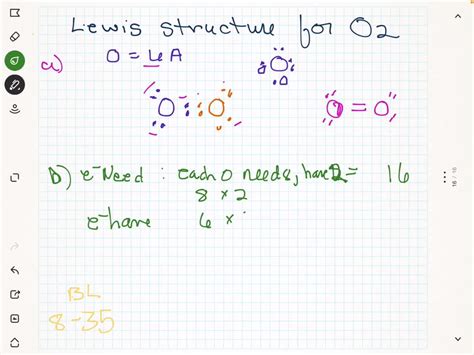 Lewis structure for O2
a) O = 6A
O
O O
O = O
b) e⁻ Need : each O needs 8, have 2 = 16
8 × 2
e⁻ have 6 ×
BL
8-35
16 / 16